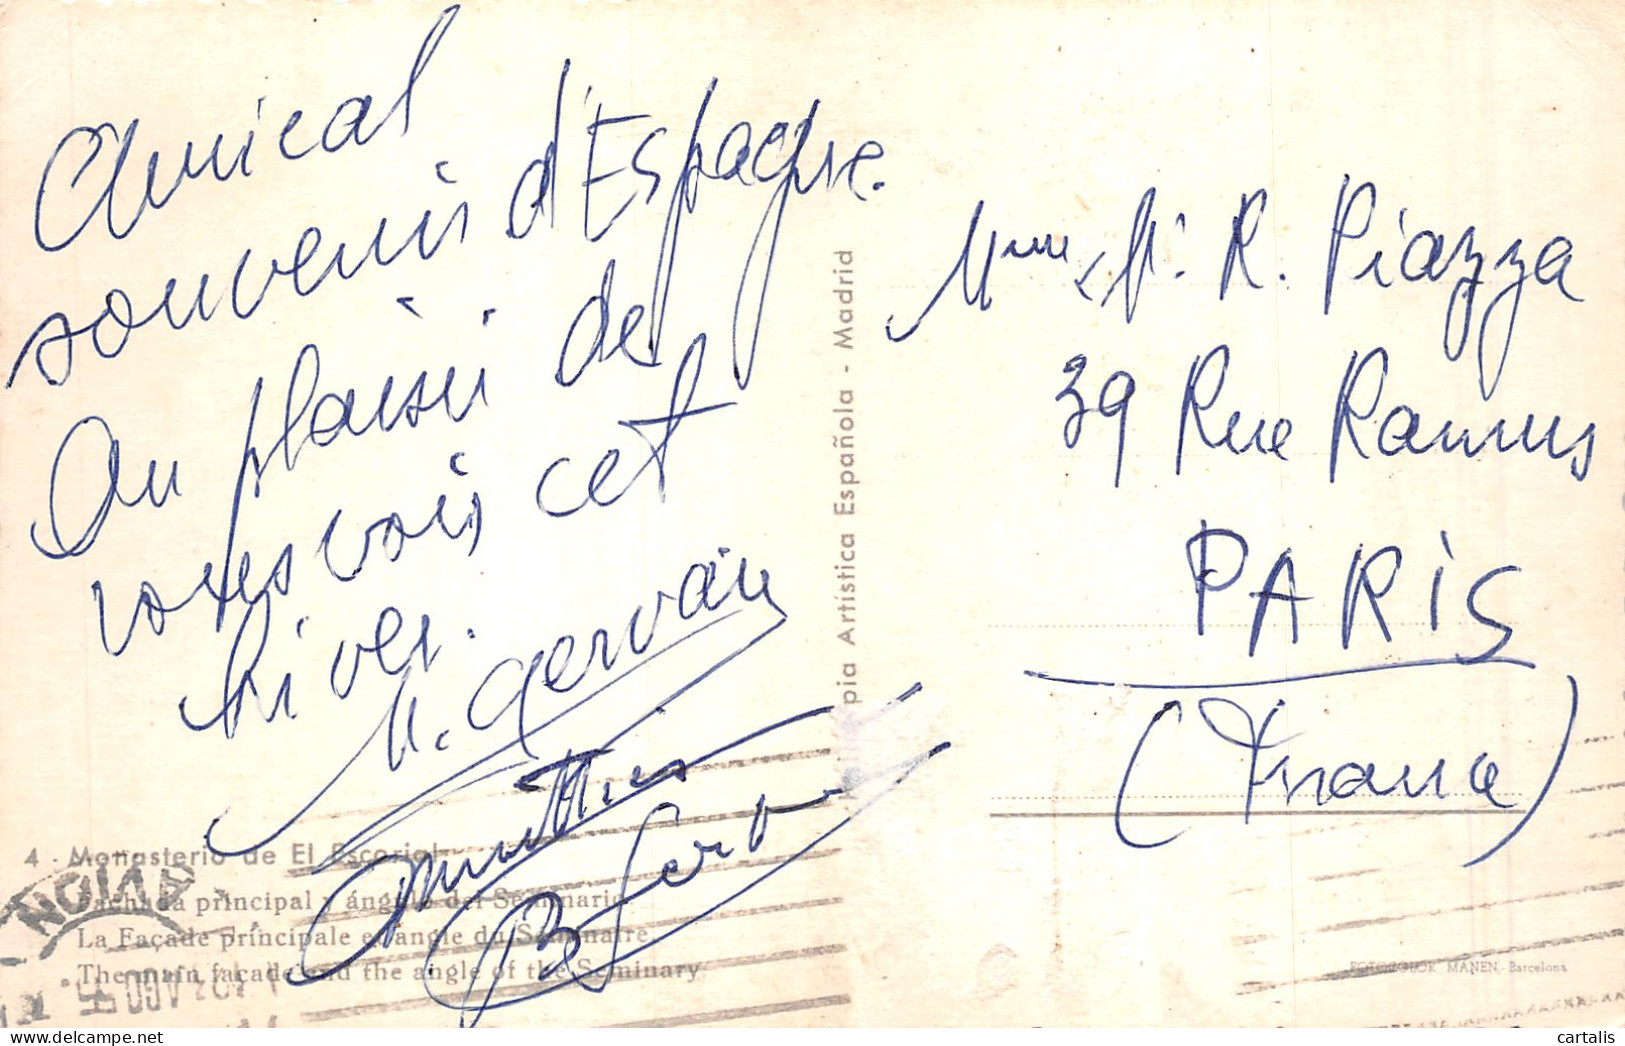 Amical
souvenir d'Espagne.
Au plaisir de
vous vois cet
hiver.
M. Gervais
Mme & Mr. R. Piazza
39 Rue Ramus
PARIS
(France)
pia Artística Española - Madrid
4 - Monasterio de El Escorial
Fachada principal y ángulo del Seminario
La Façade principale et angle du Séminaire
The main façade and the angle of the Seminary
FOTOCOLOR MANEN - Barcelona
cartalis